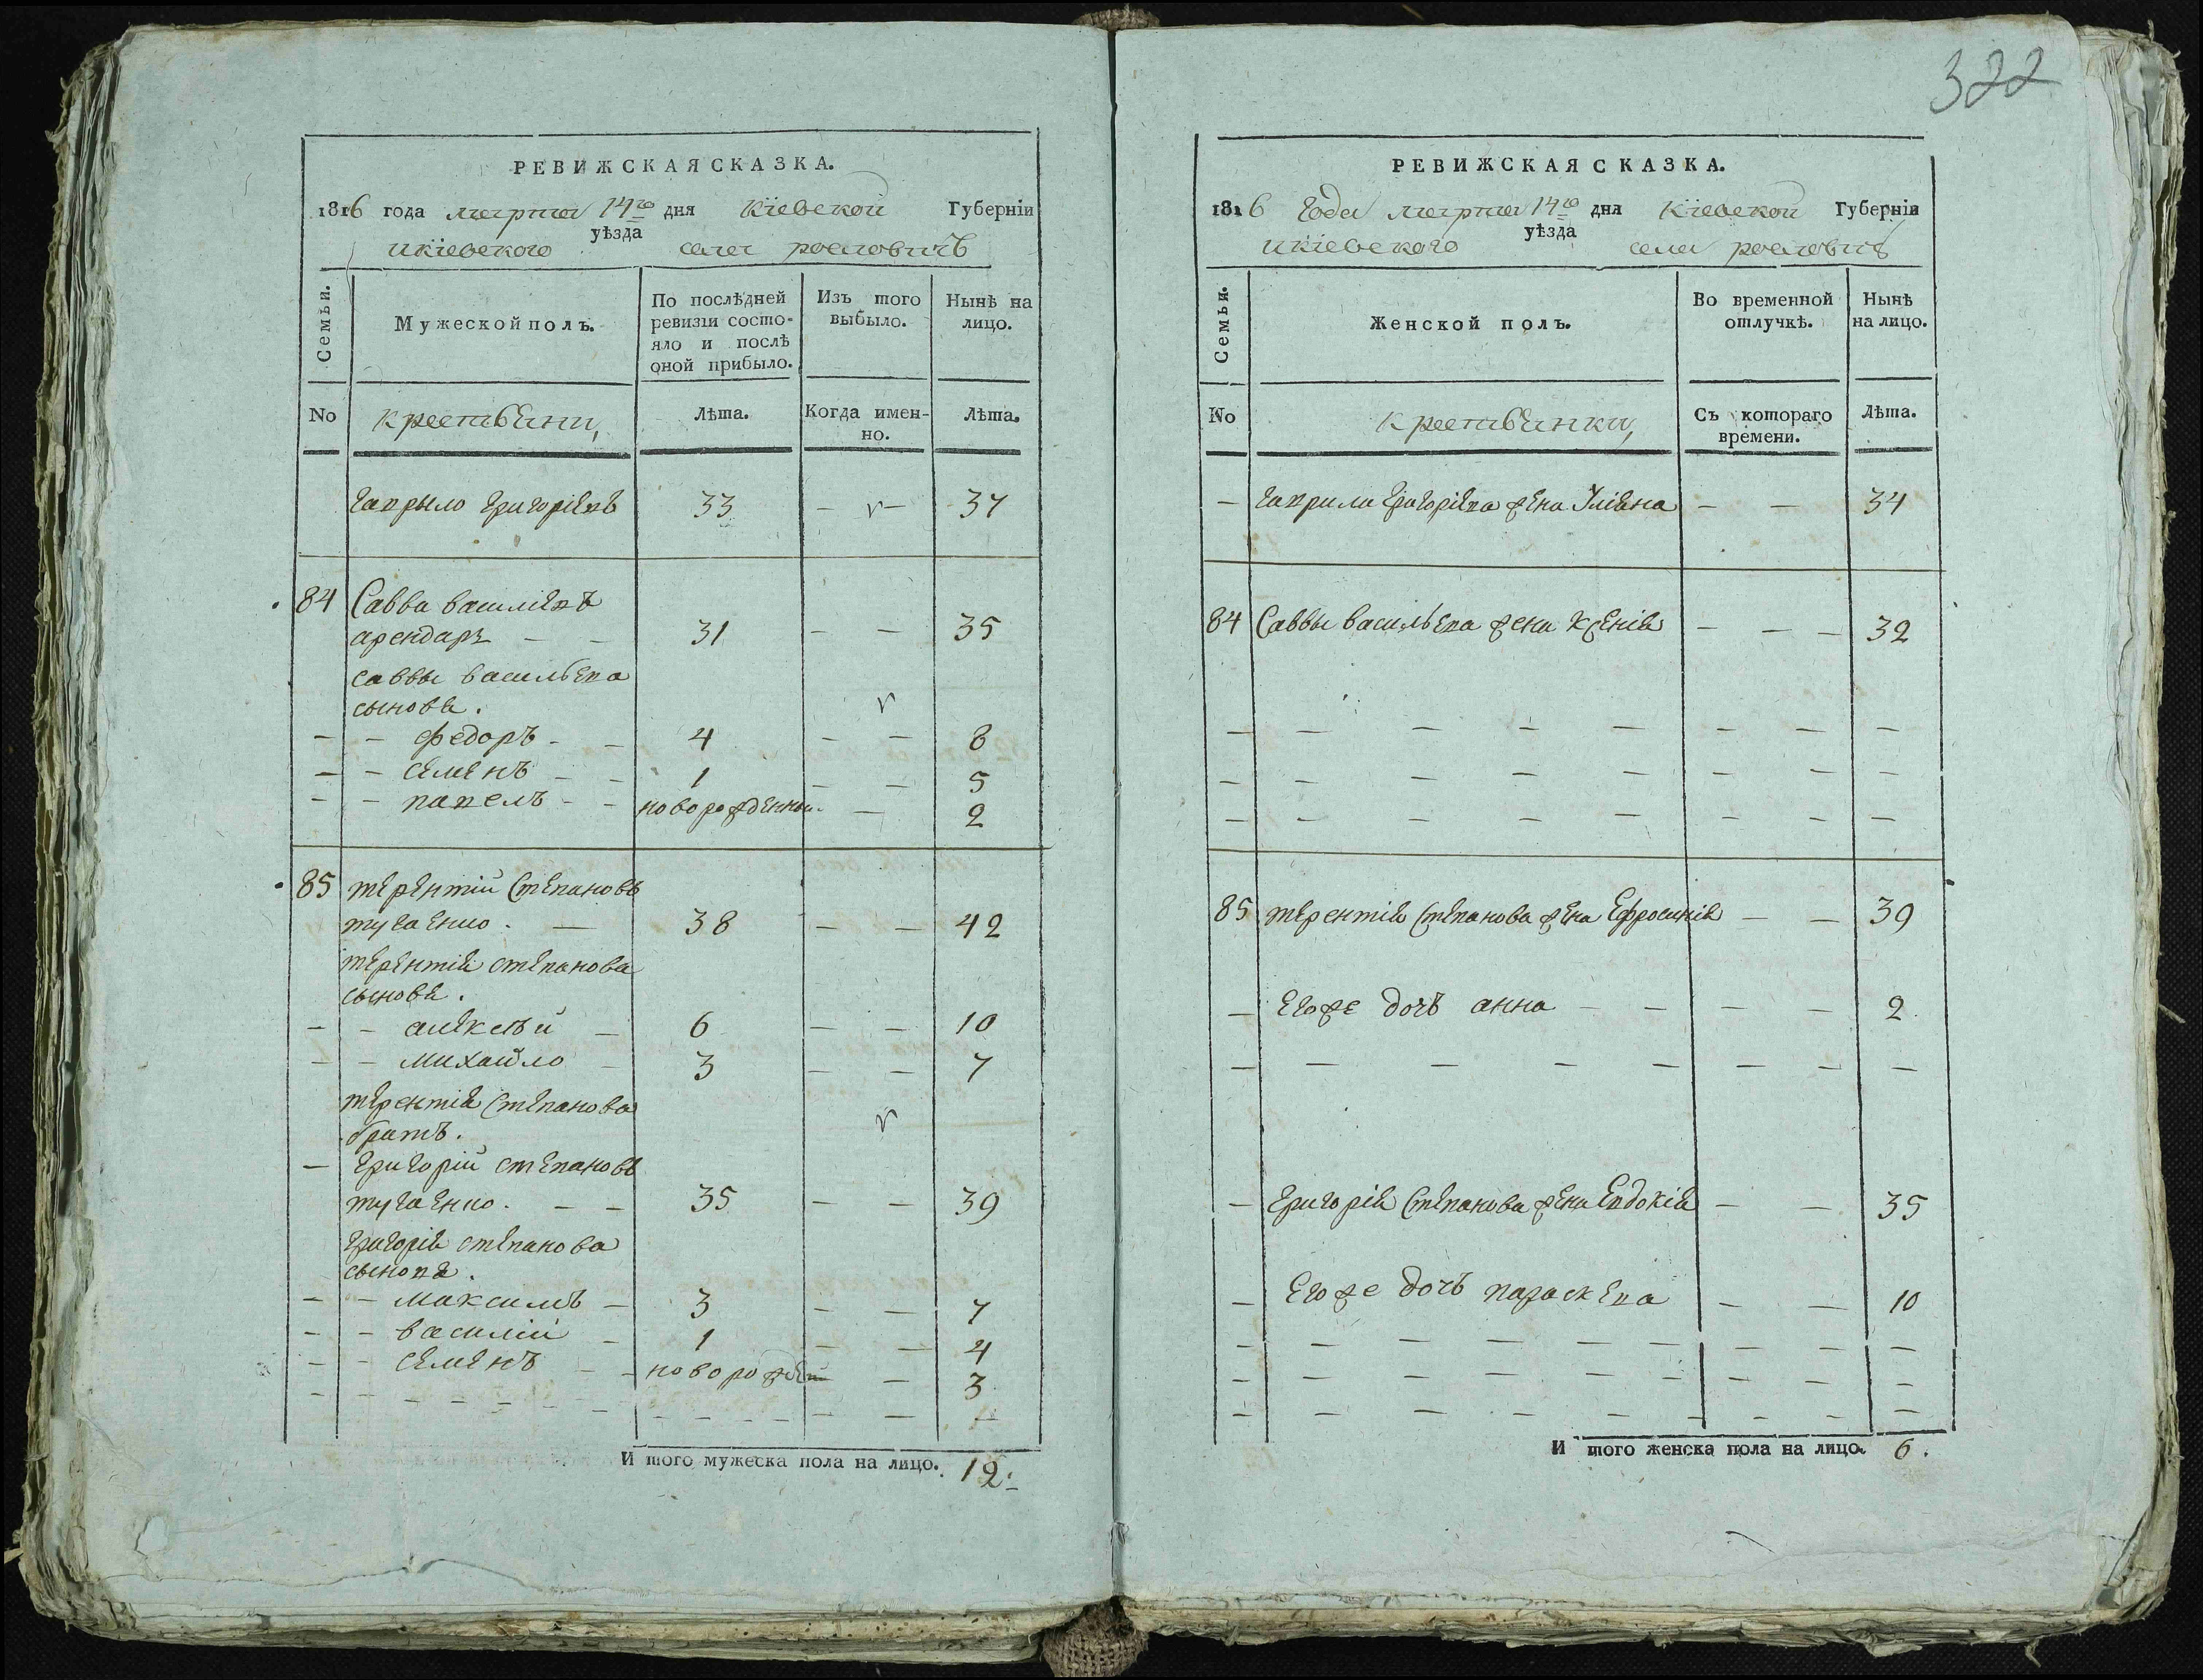 РЕВИЖСКАЯ СКАЗКА.
1816 года марта 14го дня Кіевской Губерніи
икіевского уѣзда села рословичъ
Семьи.
Мужеской полъ.
По послѣдней ревизіи состояло и послѣ оной прибыло.
Изъ того выбыло.
Нынѣ на лицо.
No
крестьяни,
Лѣта.
Когда именно.
Лѣта.
Гаврыло Григоріевъ 33 — — 37
84 Савва василіевъ
арендаръ — — 31 — — 35
саввы васильева
сыновя.
— — федоръ — — 4 — — 8
— — семенъ — — 1 — — 5
— — павелъ — — новорожденный — 2
85 терентій степановъ
38 — — 42
терентія степанова
сыновя.
— — алексѣй — 6 — — 10
— — михайло — 3 — — 7
терентія степанова
братъ.
— григорій степановъ
— — 35 — — 39
григорія степанова
сыновя.
— — максимъ — 3 — — 7
— — василій — 1 — — 4
— — семенъ — — новорожде — 3
И того мужеска пола на лицо. 12.
322
РЕВИЖСКАЯ СКАЗКА.
1816 года марта 14го дня Кіевской Губерніи
икіевского уѣзда села рословичъ
Семьи.
Женской полъ.
Во временной отлучкѣ.
Нынѣ на лицо.
No
крестьянки,
Съ котораго времени.
Лѣта.
— гаврила григоріева жена Уліяна — — 34
84 Саввы васильева жена Ксенія — — — 32
85 терентія степанова жена Ефросинія — — 39
— Егоже дочъ анна — — — — 2
— григорія степанова жена Евдокія — — 35
— Егоже дочъ параскева — — 10
И того женска пола на лицо. 6.